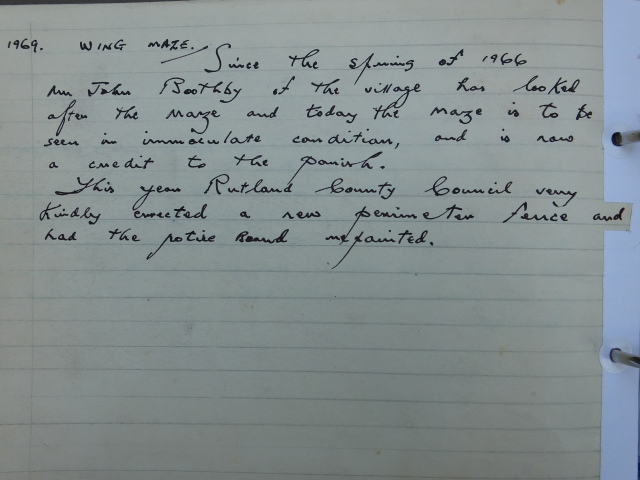 1969. WING MAZE. Since the spring of 1966
Mr John Boothby of the village has looked
after the maze and today the maze is to be
seen in immaculate condition, and is now
a credit to the parish.
This year Rutland County Council very
kindly errected a new perimeter fence and
had the notice Board repainted.